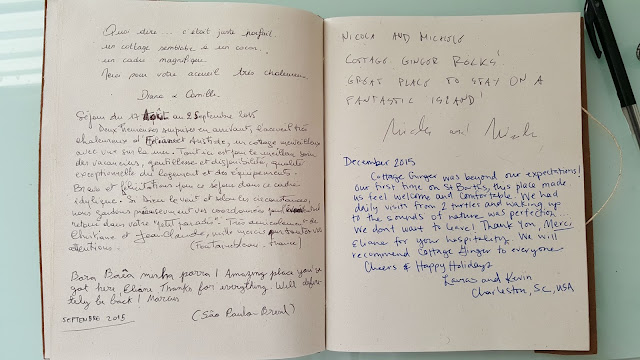 Quoi dire... c'était juste parfait
un cottage semblable à un cocon,
un cadre magnifique.
Merci pour votre accueil très chaleureux
Diana & Camille
Séjour du 17 Août au 2 Septembre 2015
Deux heureuses surprises en arrivant, l'accueil très
chaleureux d' et Aristide, un cottage merveilleux
avec vue sur la mer. Tout ici est pour le meilleur
des vacanciers, gentillesse et disponibilité, qualité
exceptionnelle du logement et des équipements.
Bravo et félicitations pour ce séjour dans ce cadre
idyllique. Si Dieu le veut et selon les circonstances,
nous gardons précieusement vos coordonnées pour
retour dans votre "petit paradis". Très
Christiane et Jean-Claude, mille mercis pour toutes vos
attentions. (Fontainebleau - France)
Bora Baêa minha porra! Amazing place you've
got here Elane. Thanks for everything. Will defini-
tely be back! Marcus
SEPTEMBRE 2015
(São Paulo - Brazil)
NICOLA AND MICHELE
COTTAGE GINGER ROCKS!
GREAT PLACE TO STAY ON A
FANTASTIC ISLAND!
December 2015
Cottage Ginger was beyond our expectations!
Our first time on St Barths, this place made
us feel welcome and comfortable. We had
daily visits from 2 turtles and waking up
to the sounds of nature was perfection...
We dont want to leave! Thank You, Merci
Eliane for your hospitality. We will
recommend Cottage Ginger to everyone
Cheers & Happy Holidays
and Kevin
Charleston, SC, USA